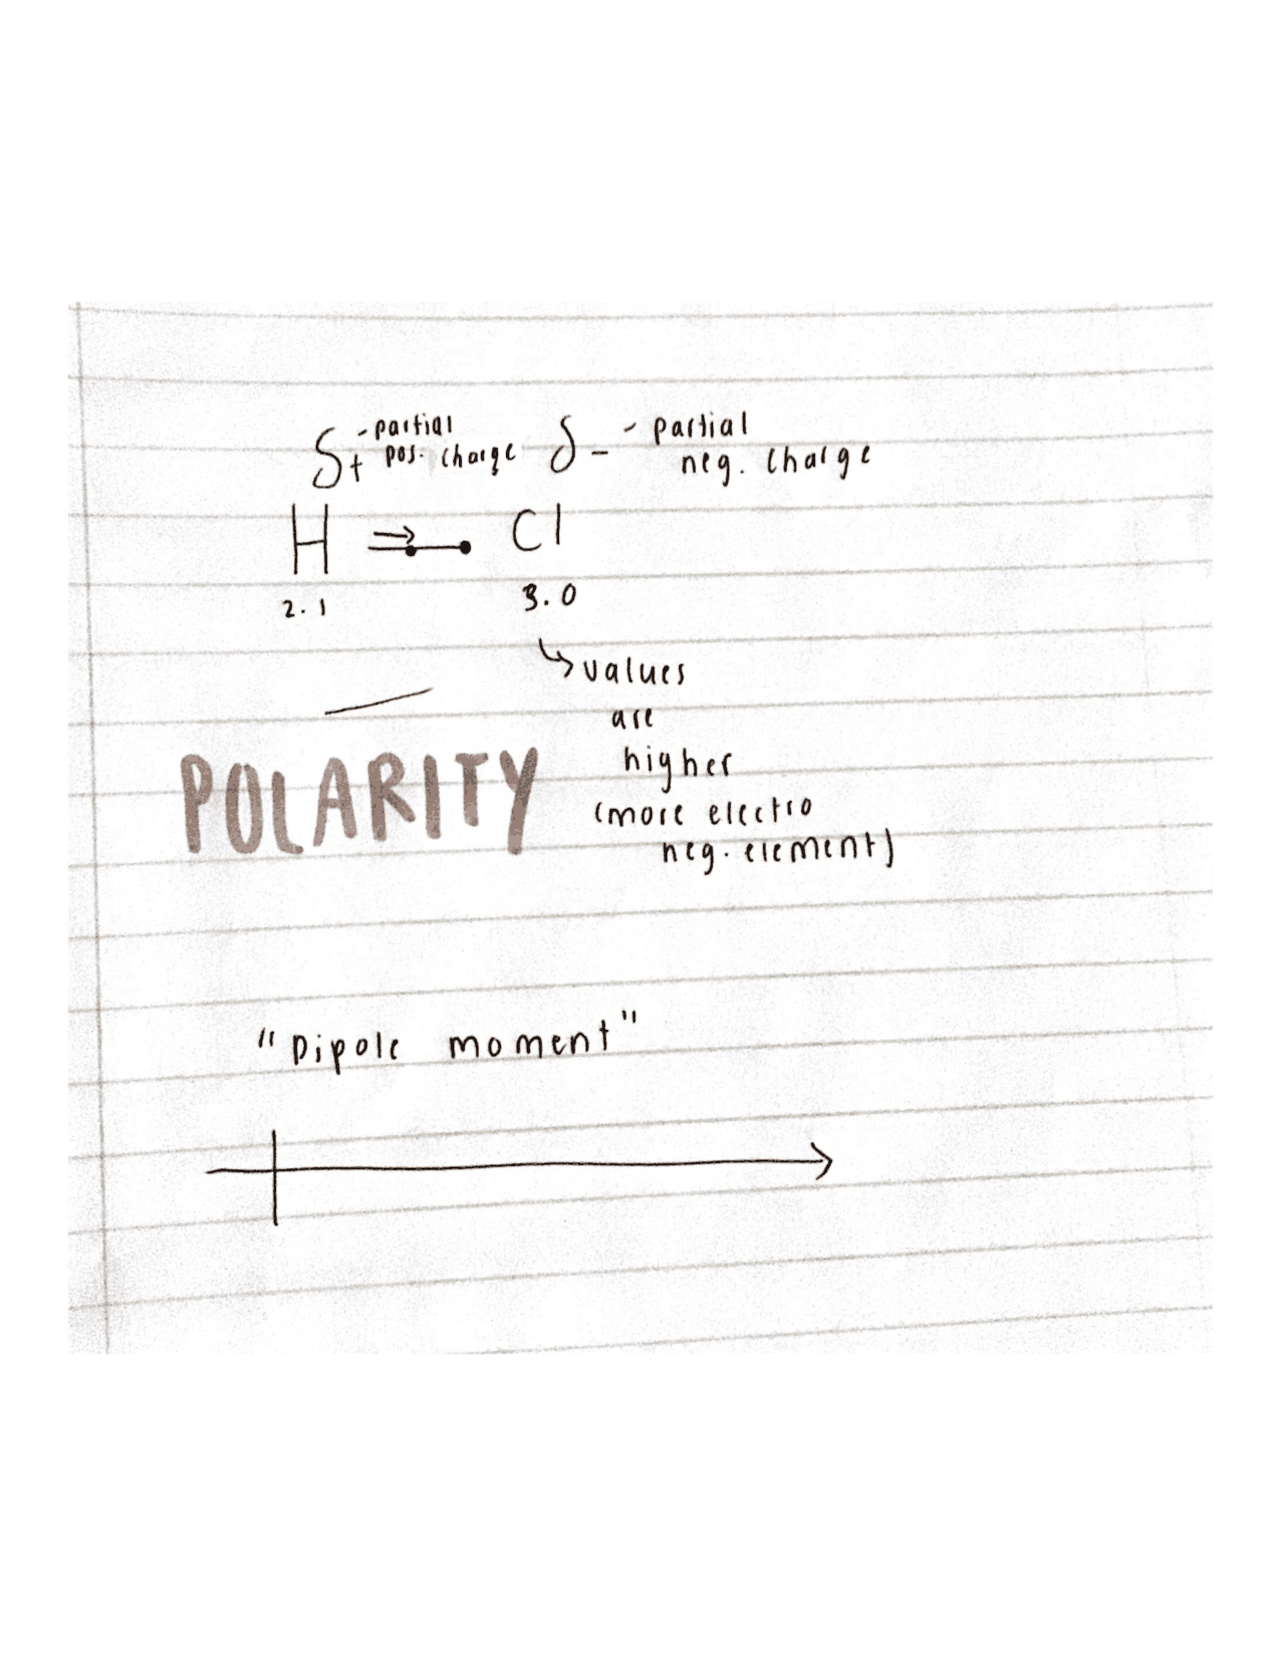 δ+ - partial pos. charge δ- - partial neg. charge
H Cl
2.1 3.0
↳ values
are
higher
(more electro
neg. element)
POLARITY
"Dipole moment"